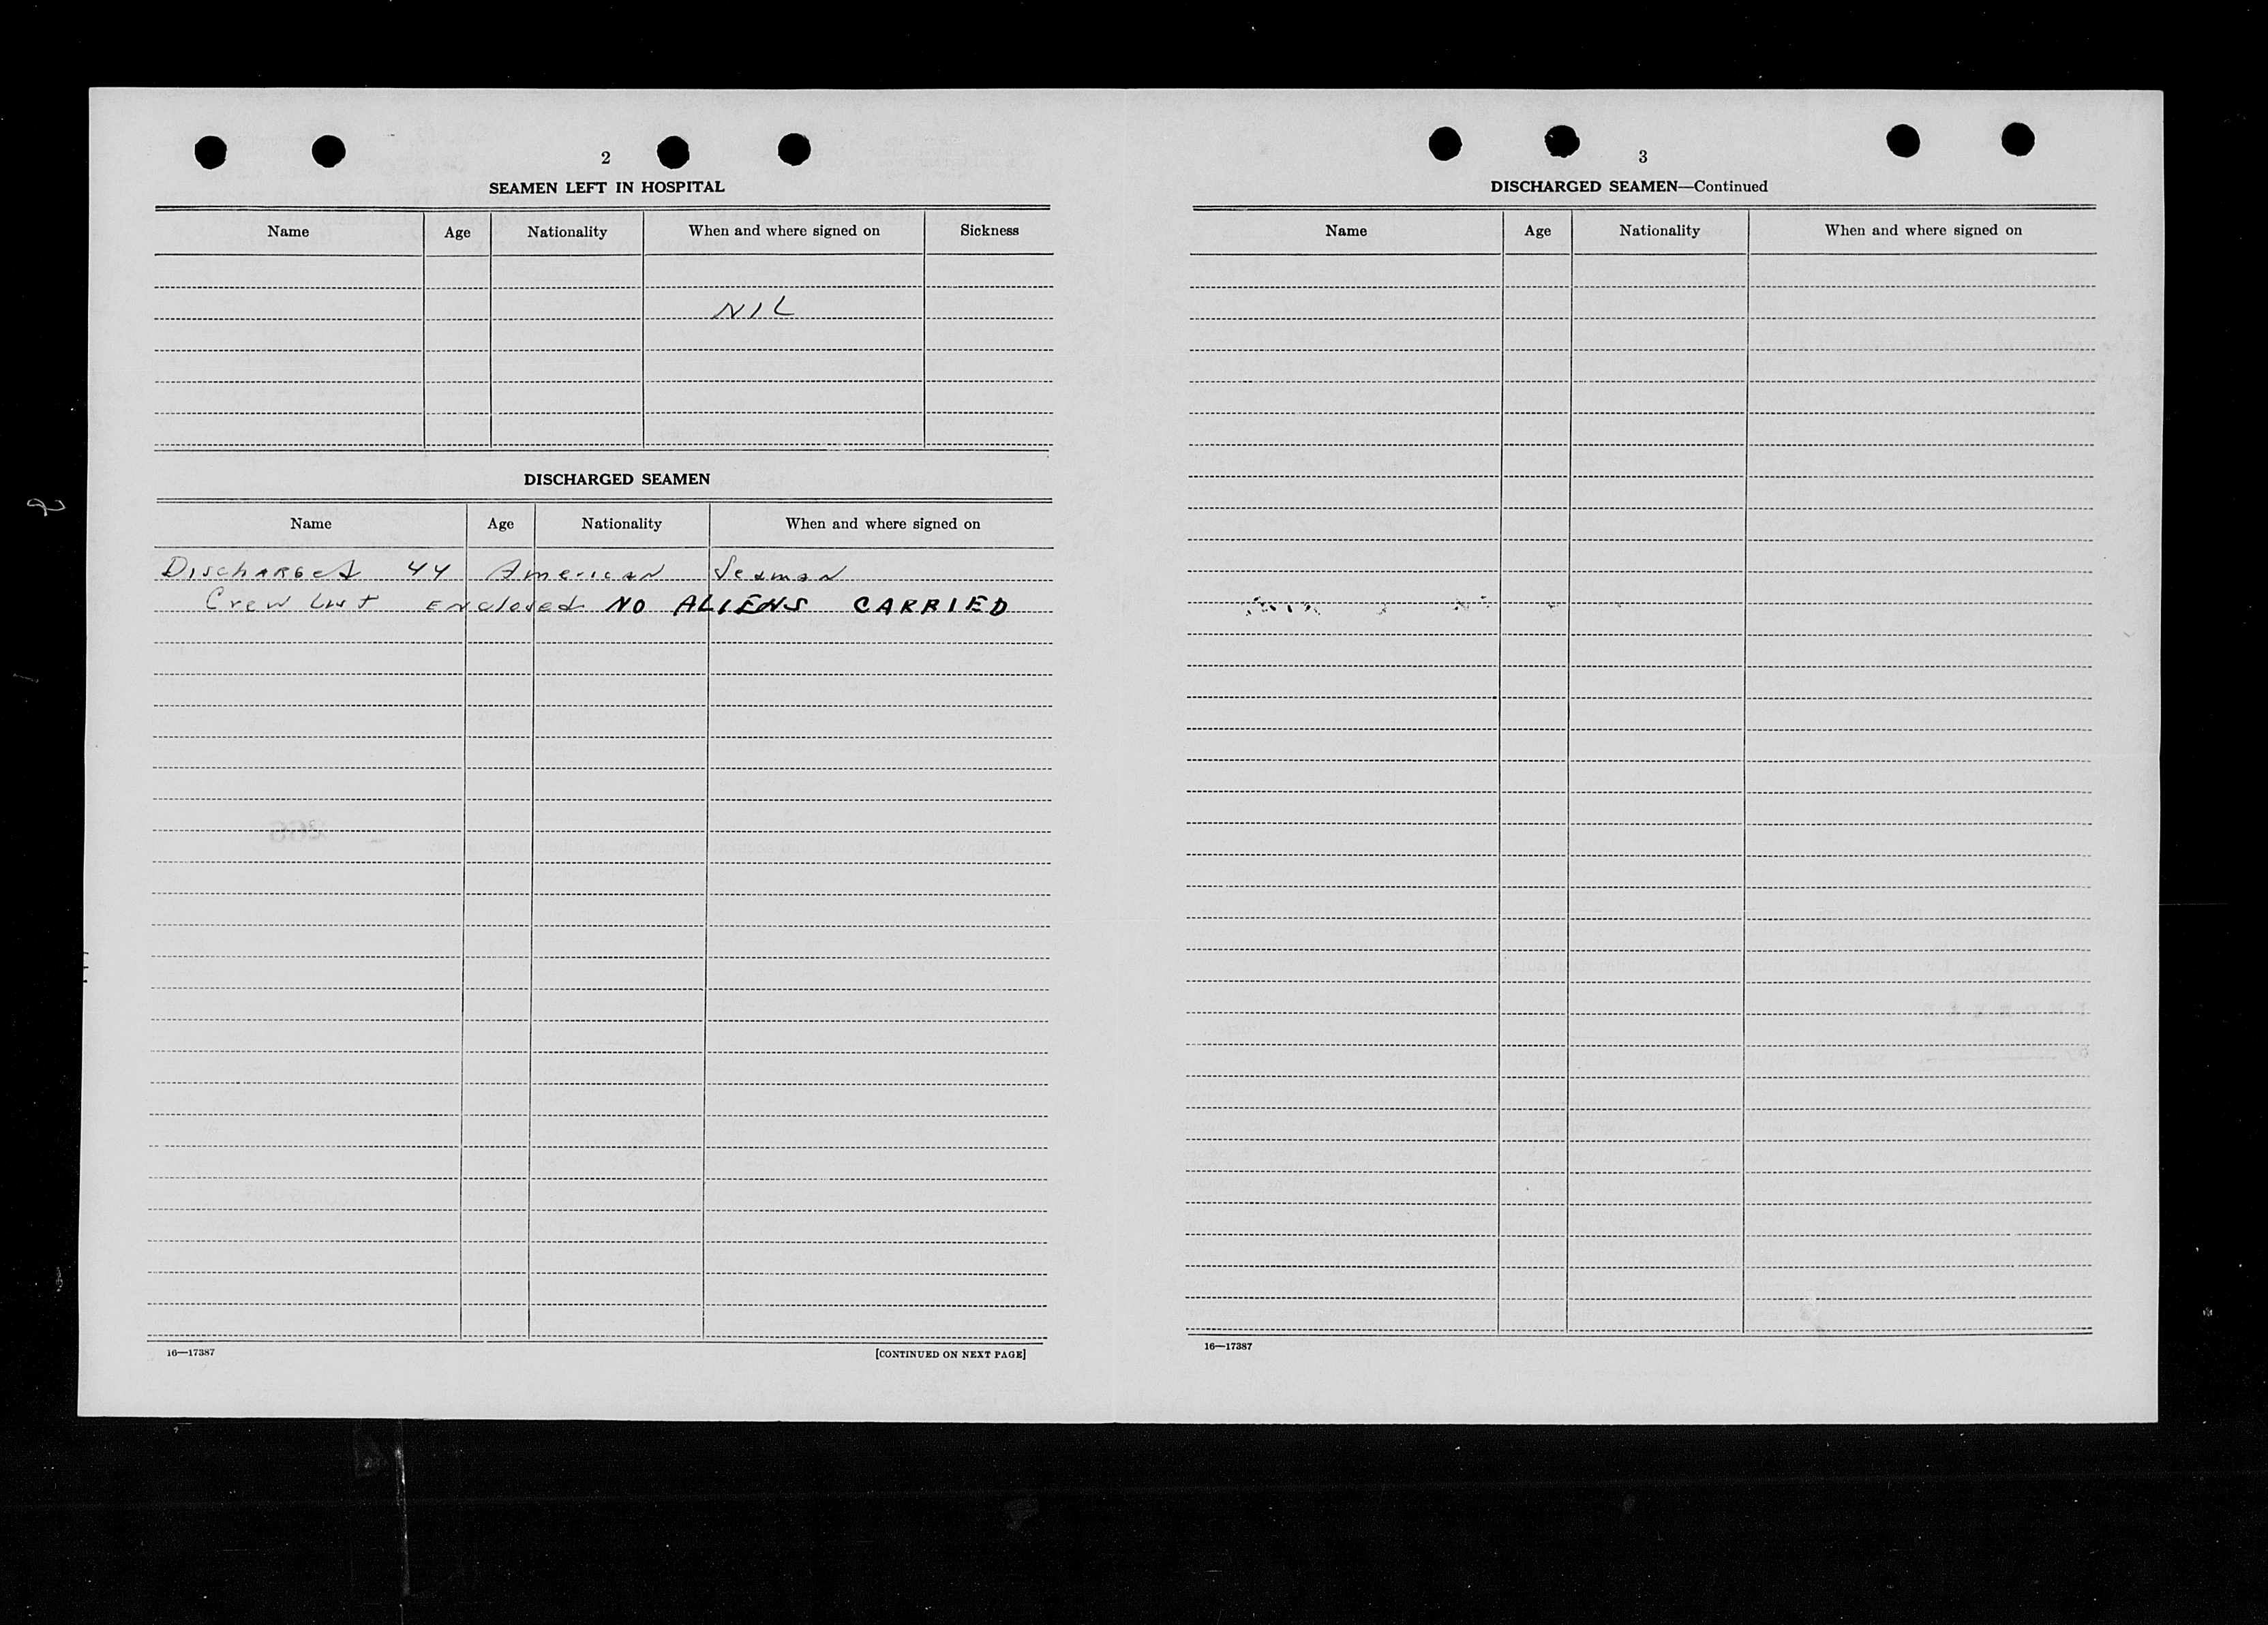 2
SEAMEN LEFT IN HOSPITAL
Name Age Nationality When and where signed on Sickness
NIL
DISCHARGED SEAMEN
Name Age Nationality When and where signed on
Discharged 44 American Seaman
Crew List Enclosed NO ALIENS CARRIED
16—17387 [CONTINUED ON NEXT PAGE]
3
DISCHARGED SEAMEN—Continued
Name Age Nationality When and where signed on
16—17387